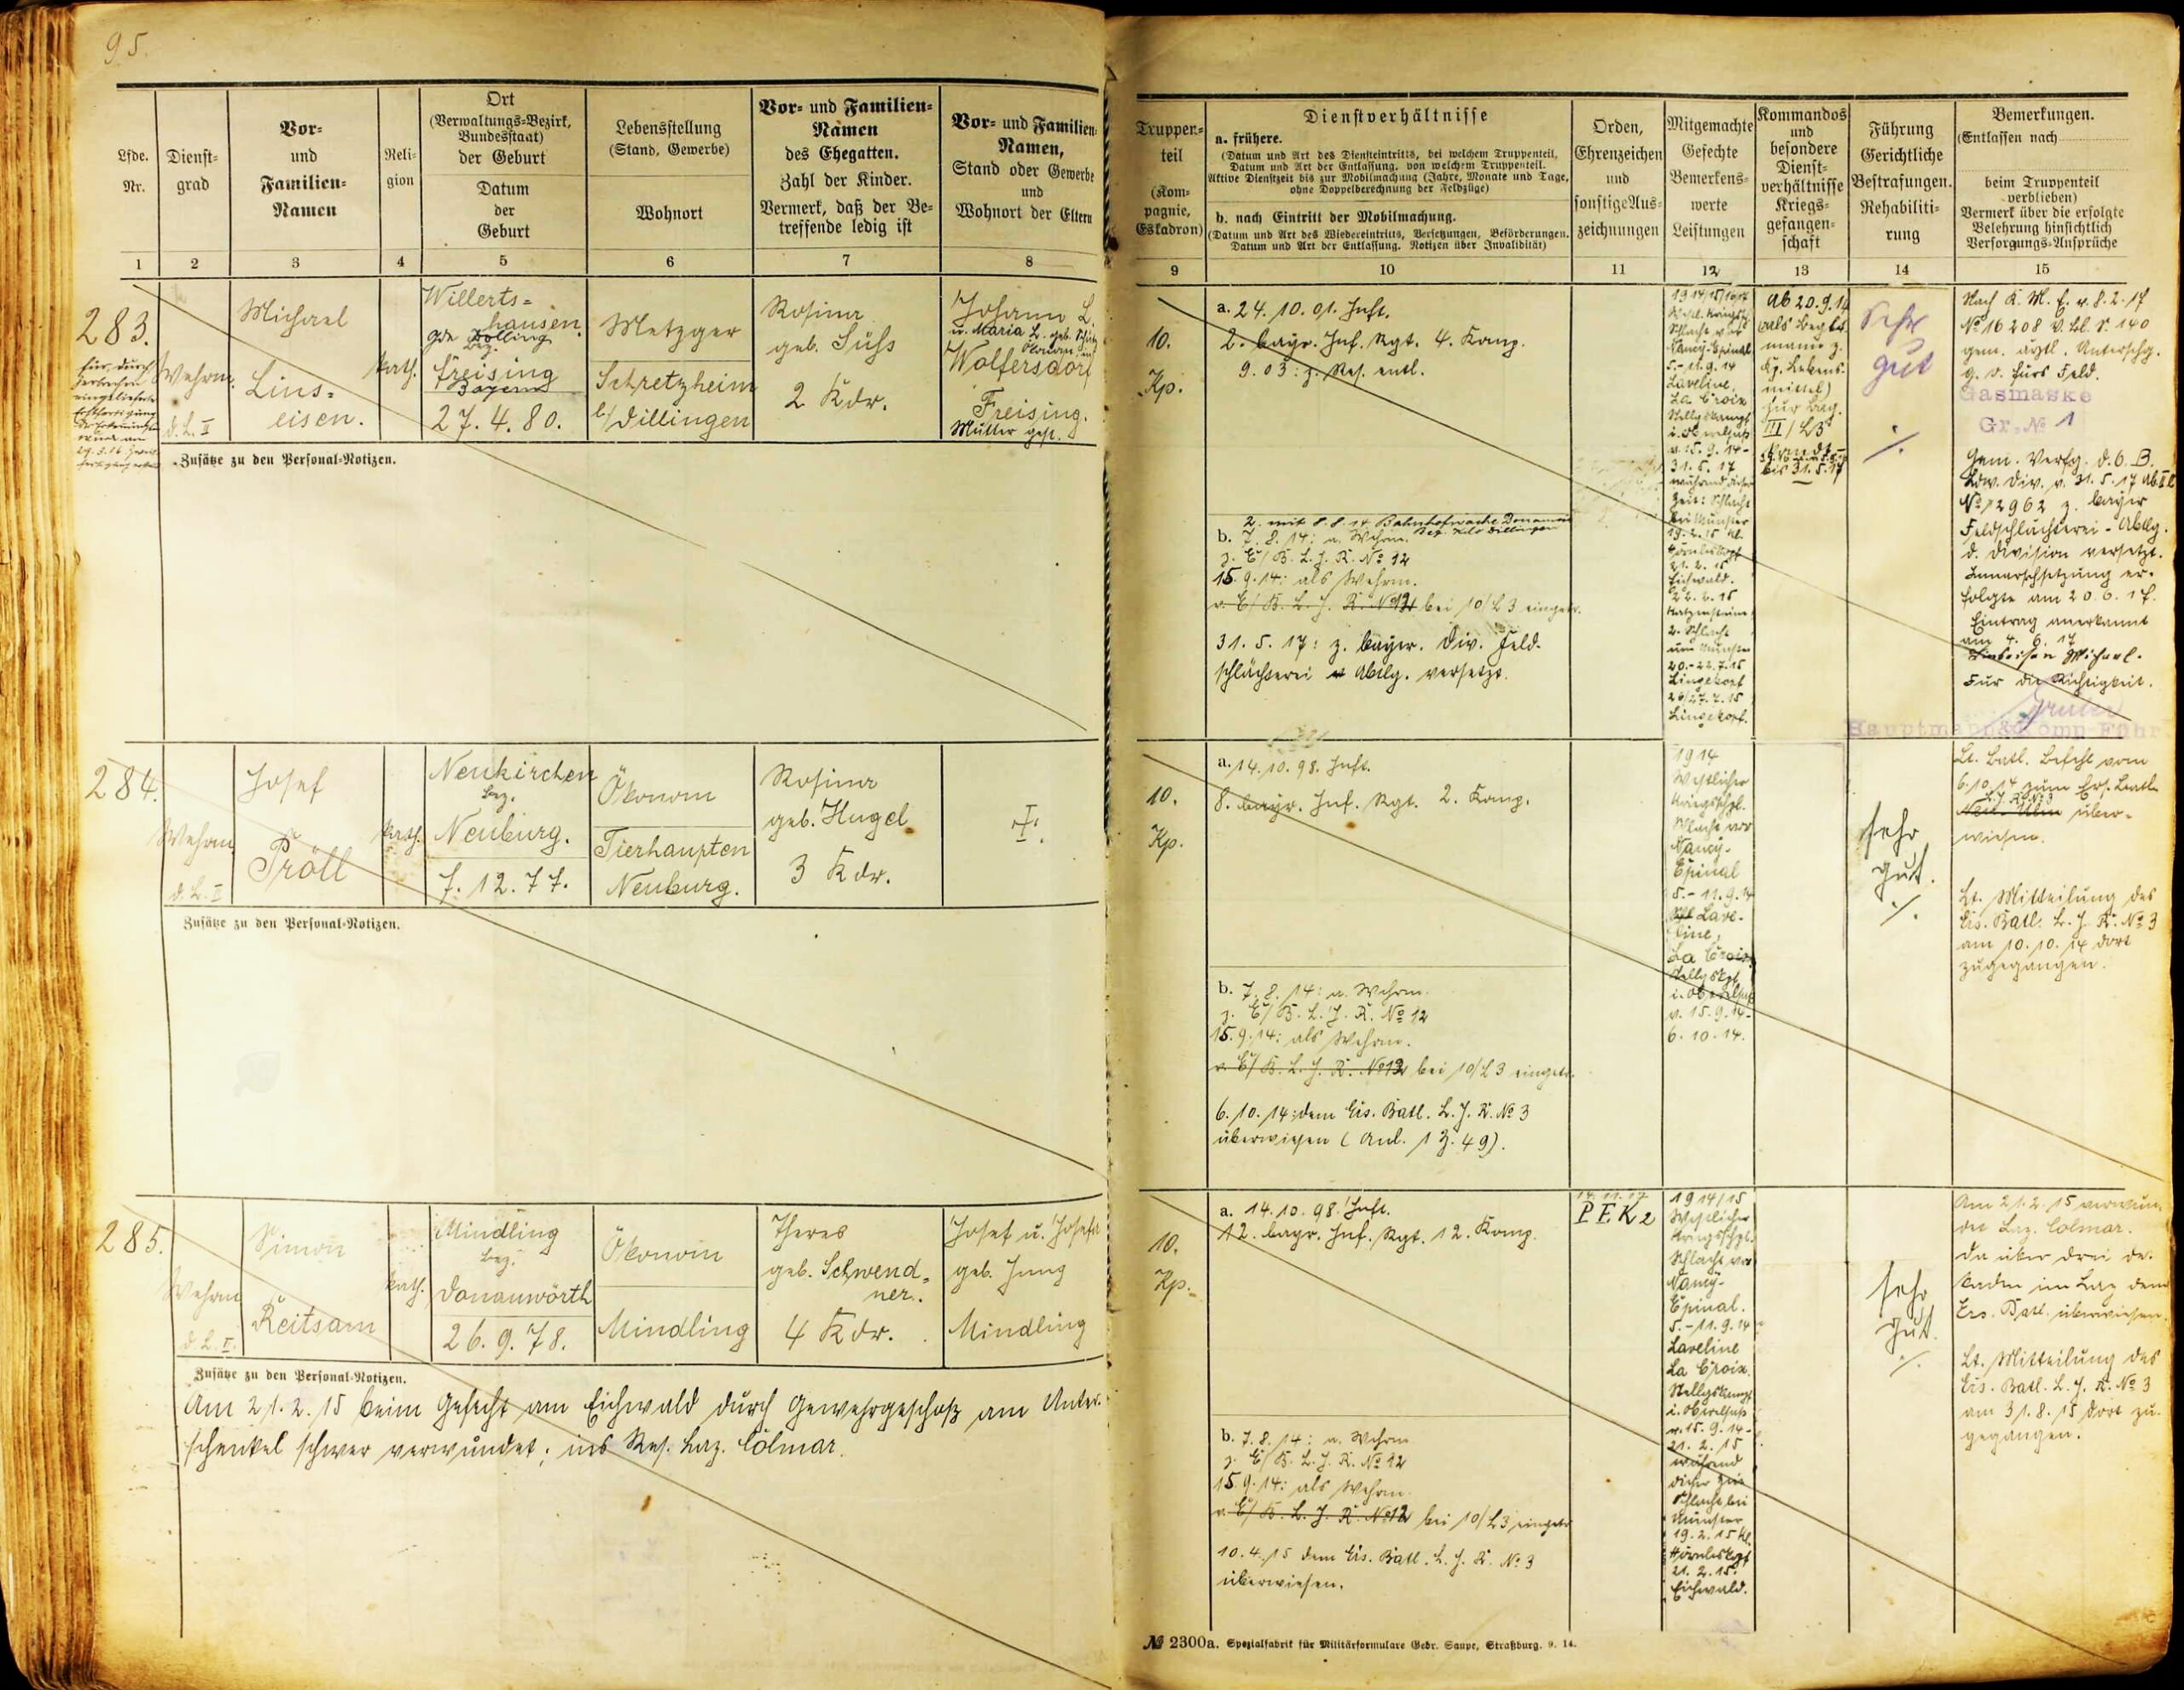 95.
Lfde.
Nr.
Dienst-
grad
Vor-
und
Familien-
Namen
Reli-
gion
Ort
(Verwaltungs-Bezirk,
Bundesstaat)
der Geburt
Datum
der
Geburt
Lebensstellung
(Stand, Gewerbe)
Wohnort
Vor- und Familien-
Namen
des Ehegatten.
Zahl der Kinder.
Vermerk, daß der Be-
treffende ledig ist
Vor- und Familien-
Namen,
Stand oder Gewerbe
und
Wohnort der Eltern
1 2 3 4 5 6 7 8
283.
Wehrm.
d. L. II
Michael
Lins-
eisen.
kath.
Willerts-
hausen
Gde Zolling
Bez.
Freising
Bayern
27. 4. 80.
Metzger
Schretzheim
b/ Dillingen
Rosina
geb. Süß
2 Kdr.
Johann L.
u. Maria L. geb.
Wolfersdorf
Freising.
Mutter gest.
Zusätze zu den Personal-Notizen.
284.
Wehrm.
d. L. II
Josef
Pröll
kath.
Neukirchen
bez.
Neuburg.
7. 12. 77.
Ökonom
Tierhaupten
Neuburg.
Rosina
geb. Hugel
3 Kdr.
Zusätze zu den Personal-Notizen.
285.
Wehrm
d. L. II.
Simon
Reitsam
kath.
Mindling
bez.
Donauwörth
26. 9. 78.
Ökonom
Mindling
Theres
geb. Schwend-
ner.
4 Kdr.
Josef u. Josefa
geb. Jung
Mindling
Zusätze zu den Personal-Notizen.
Am 21. 2. 15 beim Gefecht am Eichwald durch Gewehrgeschoß am Unter-
schenkel schwer verwundet; ins Res. Laz. Colmar.
Truppen-
teil
(Kom-
pagnie,
Eskadron)
Dienstverhältnisse
a. frühere.
(Datum und Art des Diensteintritts, bei welchem Truppenteil,
Datum und Art der Entlassung, von welchem Truppenteil.
Aktive Dienstzeit bis zur Mobilmachung (Jahre, Monate und Tage,
ohne Doppelberechnung der Feldzüge)
b. nach Eintritt der Mobilmachung.
(Datum und Art des Wiedereintritts, Versetzungen, Beförderungen.
Datum und Art der Entlassung. Notizen über Invalidität)
Orden,
Ehrenzeichen
und
sonstige Aus-
zeichnungen
Mitgemachte
Gefechte
Bemerkens-
werte
Leistungen
Kommandos
und
besondere
Dienst-
verhältnisse
Kriegs-
gefangen-
schaft
Führung
Gerichtliche
Bestrafungen.
Rehabiliti-
rung
Bemerkungen.
(Entlassen nach
beim Truppenteil
verblieben)
Vermerk über die erfolgte
Belehrung hinsichtlich
Versorgungs-Ansprüche
9 10 11 12 13 14 15
10.
Kp.
a. 24. 10. 01. Inft.
2. bayr. Inf. Rgt. 4. Komp.
9. 03: z. Res. entl.
b. 7. 8. 14: a. Wehrm.
z. E/ B. L. J. R. No 12
15. 9. 14: als Wehrm.
v. E/ B. L. J. R. No 12 bei 10/L 3 eingetr.
31. 5. 17: z. bayer. Div. Feld-
schlächterei Abtlg. versetzt.
1914/15/16/17
Schlacht vor
Nancy-Epinal
5.-11.9.14
Laveline,
La Croix
Stellgskampf
i. Oberelsaß
v. 15. 9. 14-
31. 5. 17
während dieser
Zeit: Schlacht
bei Münster
19. 2. 15 Kl.
Hörnleskopf
21. 2. 15
Eichwald.
22. 2. 15
2. Schlacht
um Münster
20.-22.7.15
Lingekopf
26/27. 7. 15
Lingekopf.
Ab 20. 9. 14
(als Begleit-
mann z.
Lebens-
mittel)
zur Bag.
III/L3
bis 31. 5. 17
Sehr
gut
./.
Nach K. M. E. v. 8. 2. 17
No 16208 V. Bl. S. 140
gem. ärztl. Untersuchg.
g. v. fürs Feld.
Gasmaske
Gr. No 1
Gem. Verfg. d. 6. B.
Ldw. Div. v. 31. 5. 17 Ab. II b
No 12962 z. bayer
Feldschlächterei-Abtlg.
d. Division versetzt.
Inmarschsetzung er-
folgte am 20. 6. 17.
Eintrag anerkannt
am 4. 6. 17
Linseisen Michael.
Für die Richtigkeit.
Hauptmann & Komp-Führ
10.
Kp.
a. 14. 10. 98. Inft.
8. bayr. Inf. Rgt. 2. Komp.
b. 7. 8. 14: a. Wehrm.
z. E/ B. L. J. R. No 12
15. 9. 14: als Wehrm.
v. E/ B. L. J. R. No 12 bei 10/L 3 eingetr.
6. 10. 14: dem Ers. Batl. L. J. R. No 3
überwiesen (Anl. 1 Z. 49).
1914
Westlicher
Kriegsschpl.
Schlacht vor
Nancy-
Epinal
5.-11.9.14
Lave-
line,
La Croix
Stellgskpf
i. Oberelsaß
v. 15. 9. 14-
6. 10. 14.
sehr
gut.
./.
Lt. Batl. Befehl vom
6. 10. 14 zum Ers. Batl.
L. J. R. No 3
Neu-Ulm über-
wiesen.
Lt. Mitteilung des
Ers. Batl. L. J. R. No 3
am 10. 10. 14 dort
zugegangen.
10.
Kp.
a. 14. 10. 98. Inft.
12. bayr. Inf. Rgt. 12. Komp.
b. 7. 8. 14: a. Wehrm
z. E/ B. L. J. R. No 12
15. 9. 14: als Wehrm.
v. E/ B. L. J. R. No 12 bei 10/L 3 eingetr
10. 4. 15 dem Ers. Batl. L. J. R. No 3
überwiesen.
14. 11. 17
P E K 2
1914/15
Westlicher
Kriegsschpl.
Schlacht vor
Nancy-
Epinal.
5.-11.9.14
Laveline
La Croix.
Stellgskampf
i. Oberelsaß
v. 15. 9. 14-
21. 2. 15
während
dieser Zeit
Schlacht bei
Münster
19. 2. 15 Kl.
Hörnleskopf
21. 2. 15.
Eichwald.
sehr
gut.
./.
Am 21. 2. 15 verwun-
det Laz. Colmar.
Da über drei
im Laz dem
Ers. Batl. überwiesen.
Lt. Mitteilung des
Ers. Batl. L. J. R. No 3
am 31. 8. 15 dort zu-
gegangen.
No 2300a. Spezialfabrik für Militärformulare Gebr. Saupe, Straßburg. 9. 14.